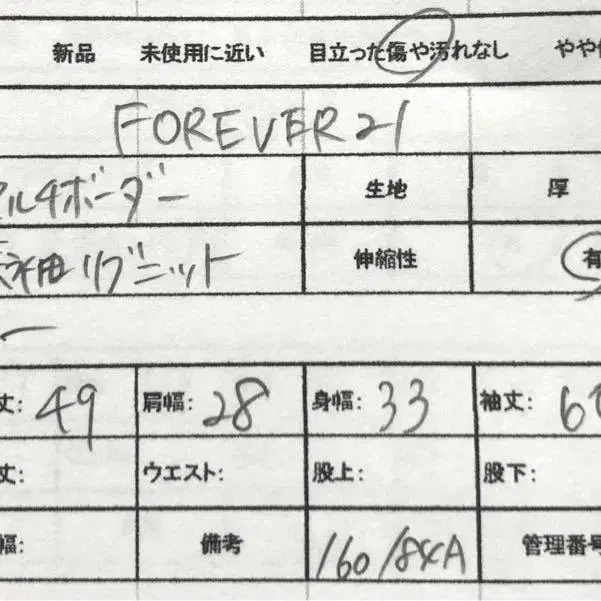 新品 未使用に近い 目立った傷や汚れなし やや
FOREVER21
マルチボーダー 生地 厚
長袖リブニット 伸縮性 有
ー
丈: 49 肩幅: 28 身幅: 33 袖丈: 6
丈: ウエスト: 股上: 股下:
幅: 備考 160/84A 管理番号